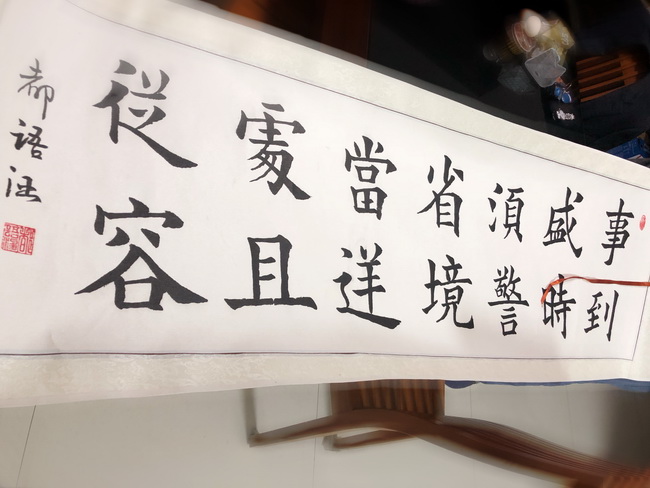 事到
盛時
須警
省境
當逆
處且
從容
郝語涵